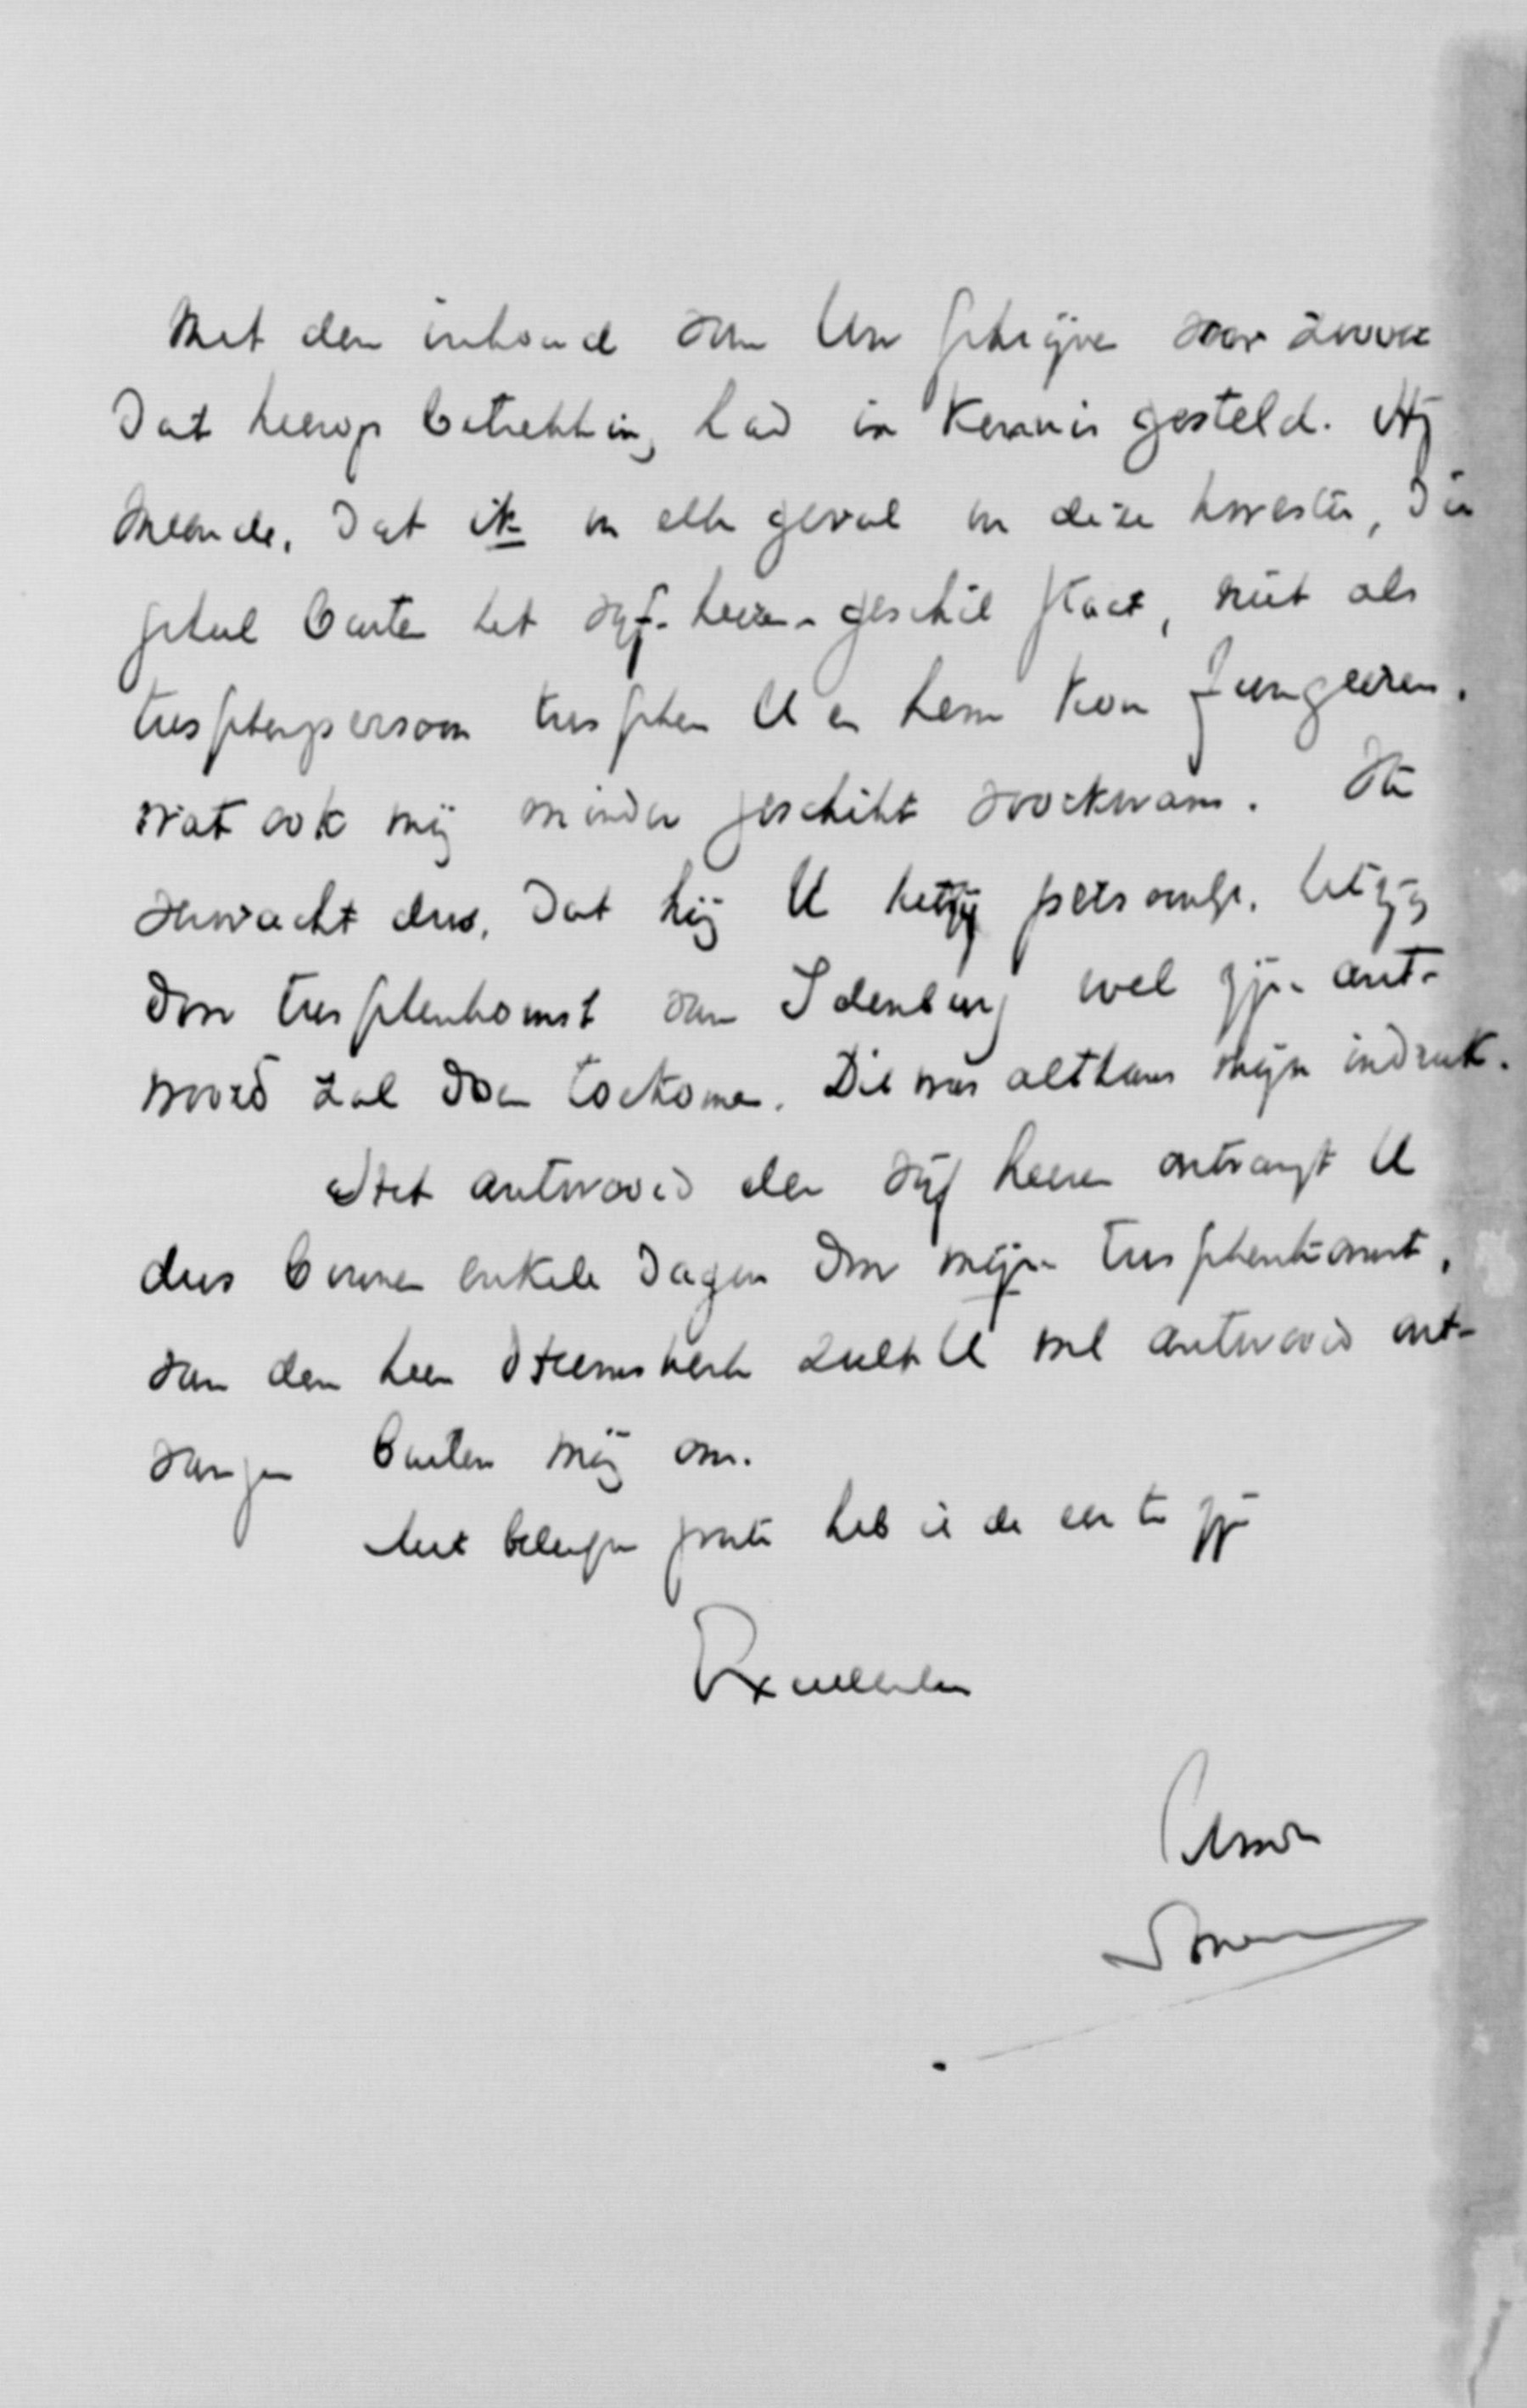 met den inhoud van Uw schrijven voor zoover
dat hierop betrekking had in kennis gesteld. Hij
meende, dat ik in elk geval in deze kwestie, die
geheel buiten het vijf-heeren-geschil staat, niet als
tusschenpersoon tusschen U en hem kon fungeeren.
wat ook mij minder geschikt voorkwam. Ik
verwacht dus, dat hij U hetzij persoonlijk, hetzij
door tusschenkomst van Idenburg wel zijn ant-
woord zal doen toekomen. Dit was althans mijn indruk.
Het antwoord der vijf heeren ontvangt U
dus binnen enkele dagen door mijn tusschenkomst,
van den heer Heemskerk zult U wel antwoord ont-
vangen buiten mij om.
Met beleefde groete heb ik de eer te zijn